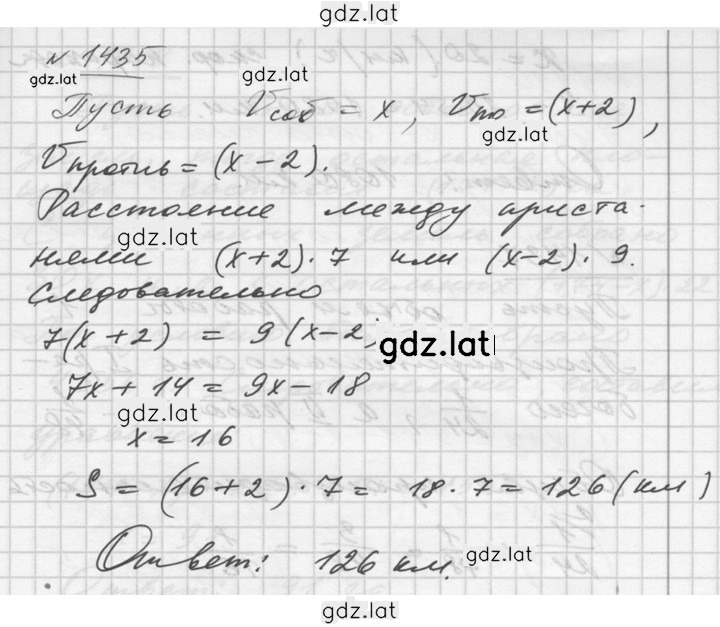 gdz.lat
№ 1435
gdz.lat
gdz.lat
Пусть Vсоб = x, Vпо = (x+2),
gdz.lat
Vпротив = (x – 2).
Расстояние между приста-
gdz.lat
нями (x+2) · 7 или (x–2) · 9.
Следовательно
7(x + 2) = 9 (x – 2)
gdz.lat
7x + 14 = 9x – 18
gdz.lat
x = 16
S = (16 + 2) · 7 = 18 · 7 = 126 (км)
Ответ: 126 км.
gdz.lat
gdz.lat